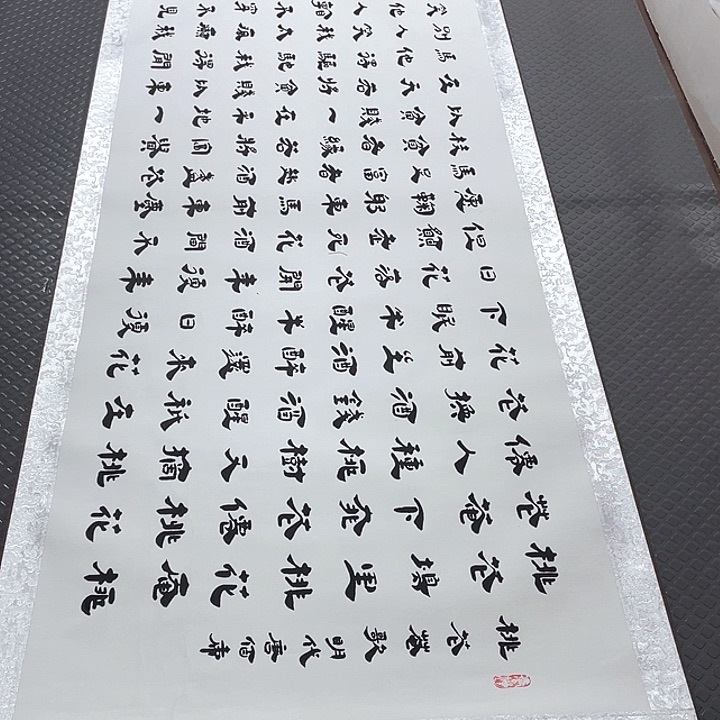 桃花庵歌明代唐伯虎
桃花塢里桃花庵桃
花庵下桃花僊桃花
僊人種桃樹又摘桃
花換酒錢酒醒祇在
花前坐酒醉還來花
下眠半醒半醉日復
日花落花開年復年
但願老死花酒間不
願鞠躬車馬前車塵
馬足富者趣酒盞花
枝貧者緣若將富貴
比貧賤一在平地一
在天若將貧賤比車
馬他得驅馳我得閒
別人笑我太瘋癲我
笑他人看不穿不見